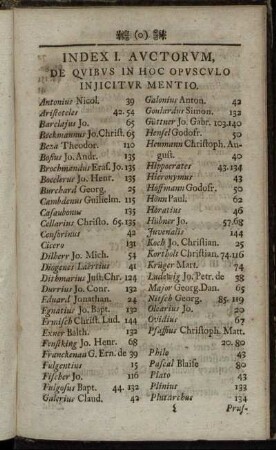 (o)
INDEX I. AVCTORVM,
DE QVIBVS IN HOC OPVSCVLO
INJICITVR MENTIO.
Antonius Nicol. 39
Aristoteles 42. 54
Barclajus Jo. 65
Beckmannus Jo. Christ. 65
Beza Theodor. 110
Bosius Jo. Andr. 135
Brochmandus Eras. Jo. 135
Boeclerus Jo. Henr. 135
Burchard Georg. 25
Cambdenus Guilielm. 115
Casaubonus 135
Cellarius Christo. 65. 135
Censorinus 42
Cicero 131
Dilherr Jo. Mich. 54
Diogenes Laertius 41
Dithmarius Just. Chr. 124
Durrius Jo. Conr. 132
Eduard Jonathan. 24
Egnatius Jo. Bapt. 132
Ermisch Christ. Lud. 144
Exner Balth. 132
Feustking Jo. Henr. 68
Franckenau G. Ern. de 39
Fulgentius 15
Fischer Jo. 116
Fulgosus Bapt. 44. 132
Galerius Claud. 42
Galonius Anton. 42
Goulardus Simon. 132
Güttner Jo. Gabr. 103. 140
Hensel Godofr. 50
Heumann Christoph. Au-
gust. 40
Hippocrates 43. 134
Hieronymus 43
Hoffmann Godofr. 50
Hönn Paul. 62
Horatius 46
Hübner Jo. 57. 68
Juvenalis 144
Koch Jo. Christian. 25
Kortholt Christian. 74. 116
Krüger Matt. 74
Ludewig Jo. Petr. de 38
Major Georg. Dan. 65
Nitsch Georg. 85. 119
Olearius Jo. 20
Ovidius 67
Pfaffius Christoph. Matt.
20. 80
Philo 43
Pascal Blaise 80
Plato 43
Plinius 133
Plutarchus 134
Pruf-